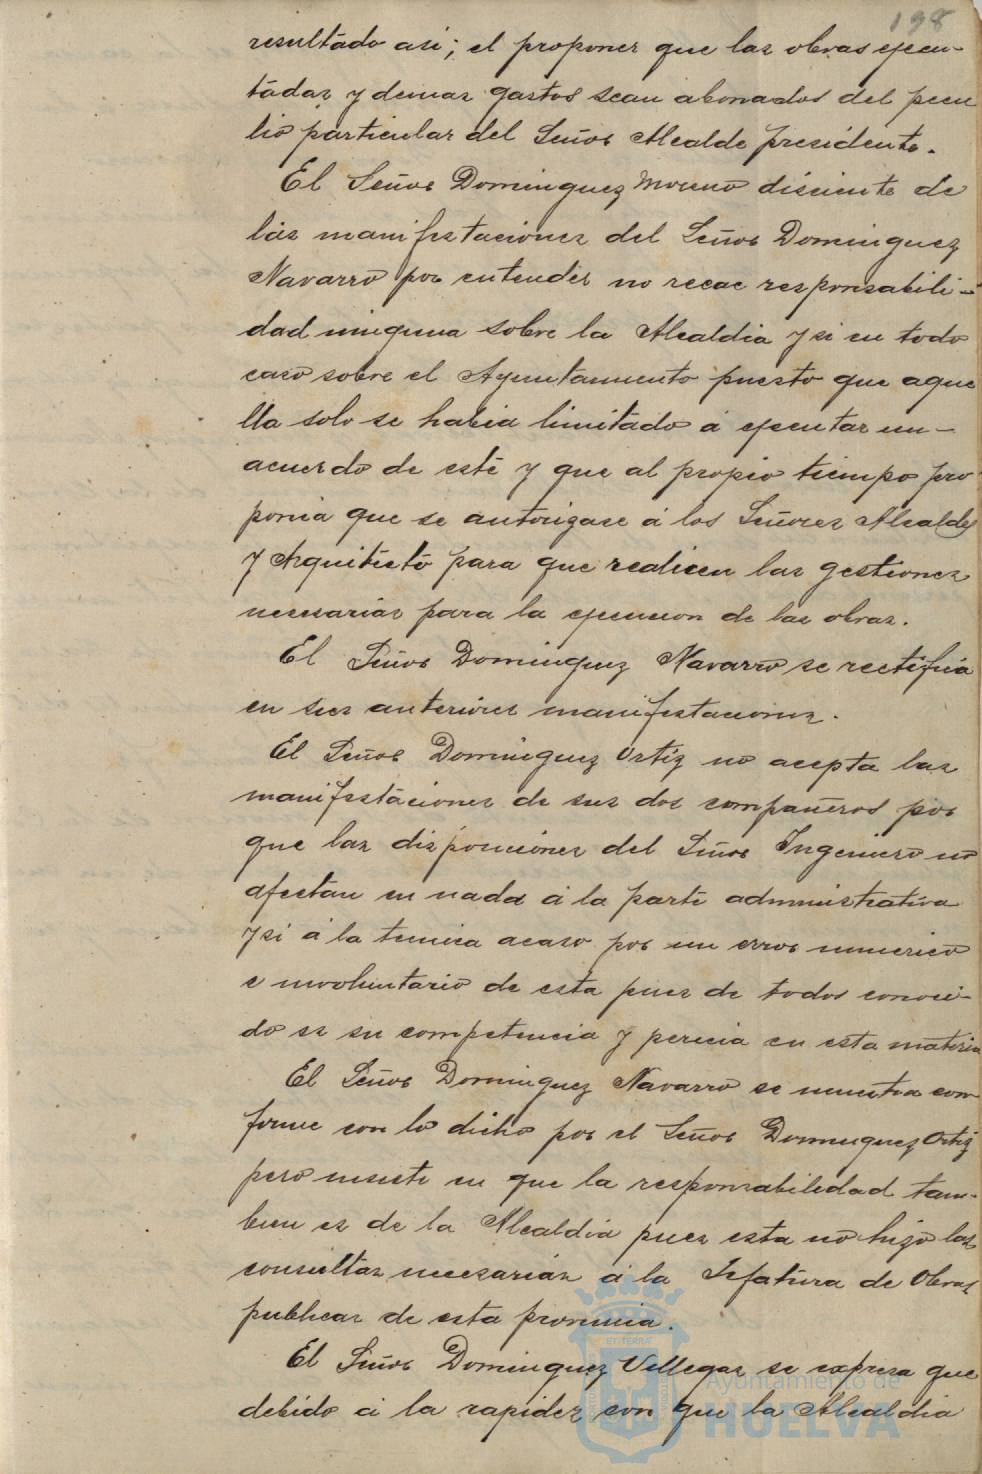 198
resultado asi; el proponer que las obras ejecu-
tadas y demas gastos sean abonados del pecu
lio particular del Señor Alcalde presidente.
El Señor Dominguez Moreno disiente de
las manifestaciones del Señor Dominguez
Navarro por entender no recae responsabili-
dad ninguna sobre la Alcaldia y si en todo
caso sobre el Ayuntamiento puesto que aque
lla solo se habia limitado á ejecutar un-
acuerdo de este y que al propio tiempo pro
ponia que se autorizase á los Señores Alcalde
y Arquitecto para que realicen las gestiones
necesarias para la ejecucion de las obras.
El Señor Dominguez Navarro se rectifica
en sus anteriores manifestaciones.
El Señor Dominguez Ortiz no acepta las
manifestaciones de sus dos compañeros por
que las disposiciones del Señor Ingeniero no
afectan en nada á la parte administrativa
y si á la tecnica acaso por un error numerico
e involuntario de esta pues de todos conoci-
do es su competencia y pericia en esta materia
El Señor Dominguez Navarro se muestra con
forme con lo dicho por el Señor Dominguez Ortiz
pero insiste en que la responsabilidad tam-
bien es de la Alcaldia pues esta no hizo las
consultas necesarias á la Jefatura de Obras
publicas de esta provincia.
El Señor Dominguez Villegas se expresa que
debido á la rapidez con que la Alcaldia
Ayuntamiento de
HUELVA